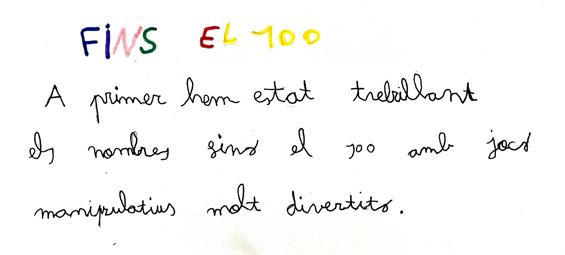 FINS EL 100
A primer hem estat treballant
els nombres fins el 100 amb jocs
manipulatius molt divertits.